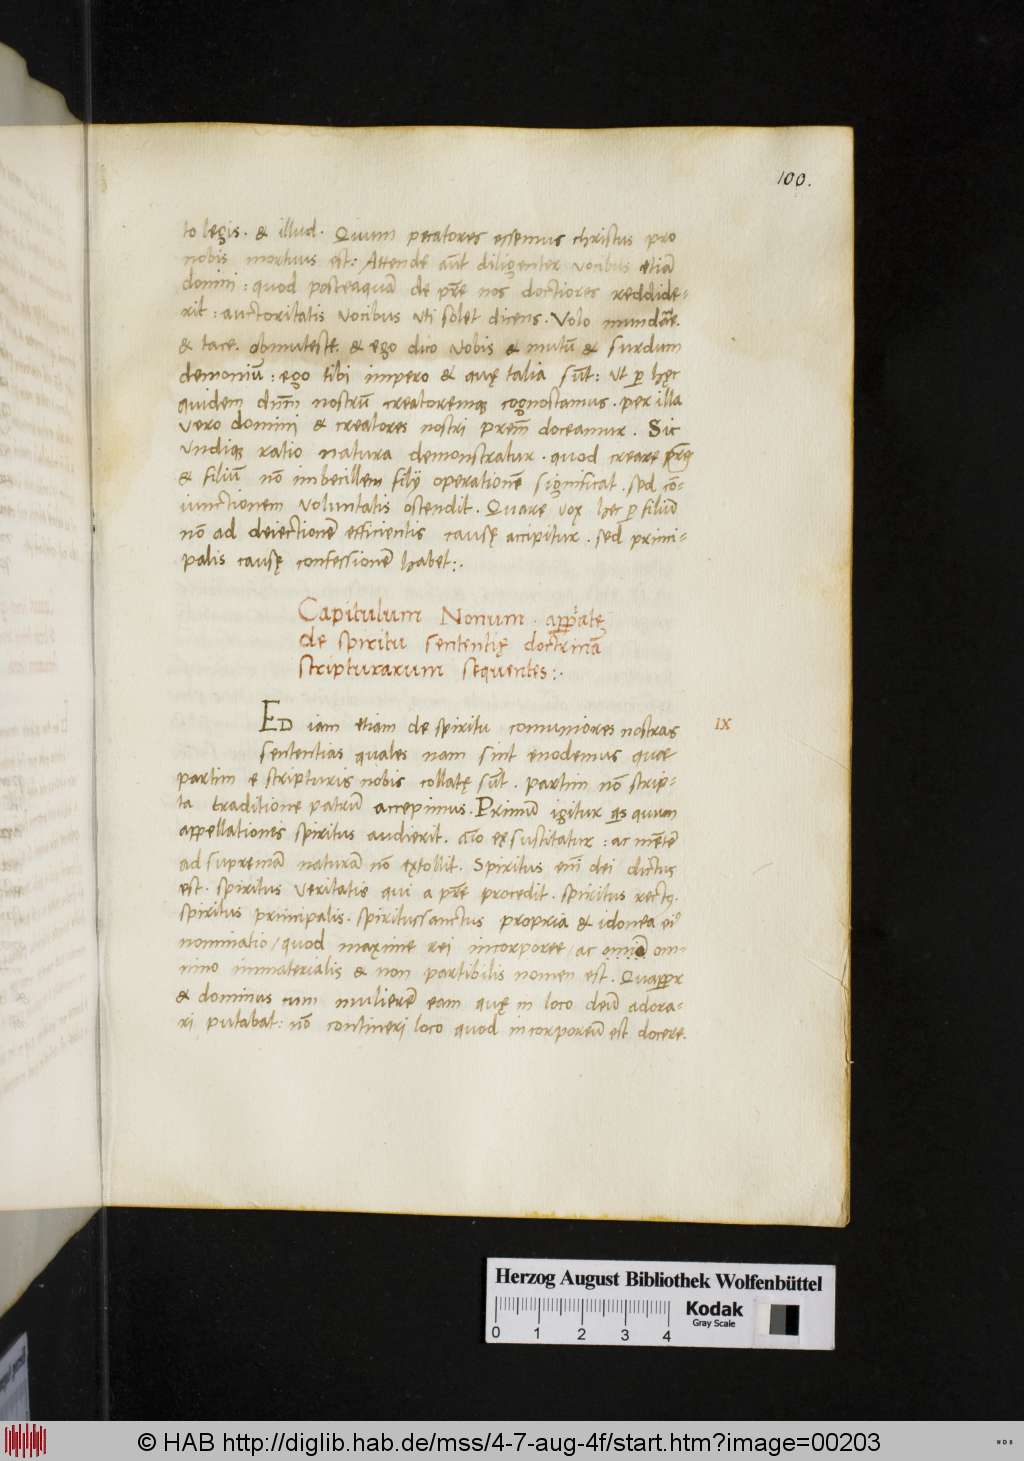 100.
to legis. & illud. Quum peccatores essemus christus pro
nobis mortuus est: Attende aūt diligenter vocibus etiā
domini: quod posteaquā de pr̄e nos doctiores reddide-
rit: auctoritatis vocibus uti solet dicens. Volo mundāre.
& tace. obmutesce. & ego dico vobis & mutū & surdum
demoniū: ego tibi impero & quę talia sūt: ut p hęc
quidem dn̄m nostrū creatoremq; cognoscamus. per illa
vero domini & creatores nostri prem̄ doceamur. Sic
undiq; ratio natura demonstratur. quod creare
& filiū nō imbecillem filij operationē significat. sed cō-
iunctionem voluntatis ostendit. Quare vox hec p filiū
nō ad deiectionē efficientis causę accipitur. sed princi-
palis causę confessionē habet:.
Capitulum Nonum. apparatę
de spiritu sententię doctrinā
scripturarum sequentes:.
ED iam etiam de spiritu comuniores nostras IX
sententias quales nam sint enodemus quae
partim e scripturis nobis collatę sūt. partim nō scrip-
ta traditione patrū accepimus. Primū igitur qs quum
appellationis spiritus audierit. aīo exsuscitatur: ac mētē
ad supremā naturā nō extollit. Spiritus enī dei dictus
est. spiritus veritatis qui a pr̄e procedit. spiritus rectq.
spiritus principalis. spiritussanctus propria & idonea ei9
nominatio / quod maxime rei incorporee / ac om-
nino immaterialis & non partibilis nomen est. Quappr
& dominus cum mulierē eam quę in loco deū adora-
ri putabat: nō contineri loco quod incorporeū est docere.
Herzog August Bibliothek Wolfenbüttel
0 1 2 3 4
Kodak
Gray Scale
© HAB http://diglib.hab.de/mss/4-7-aug-4f/start.htm?image=00203